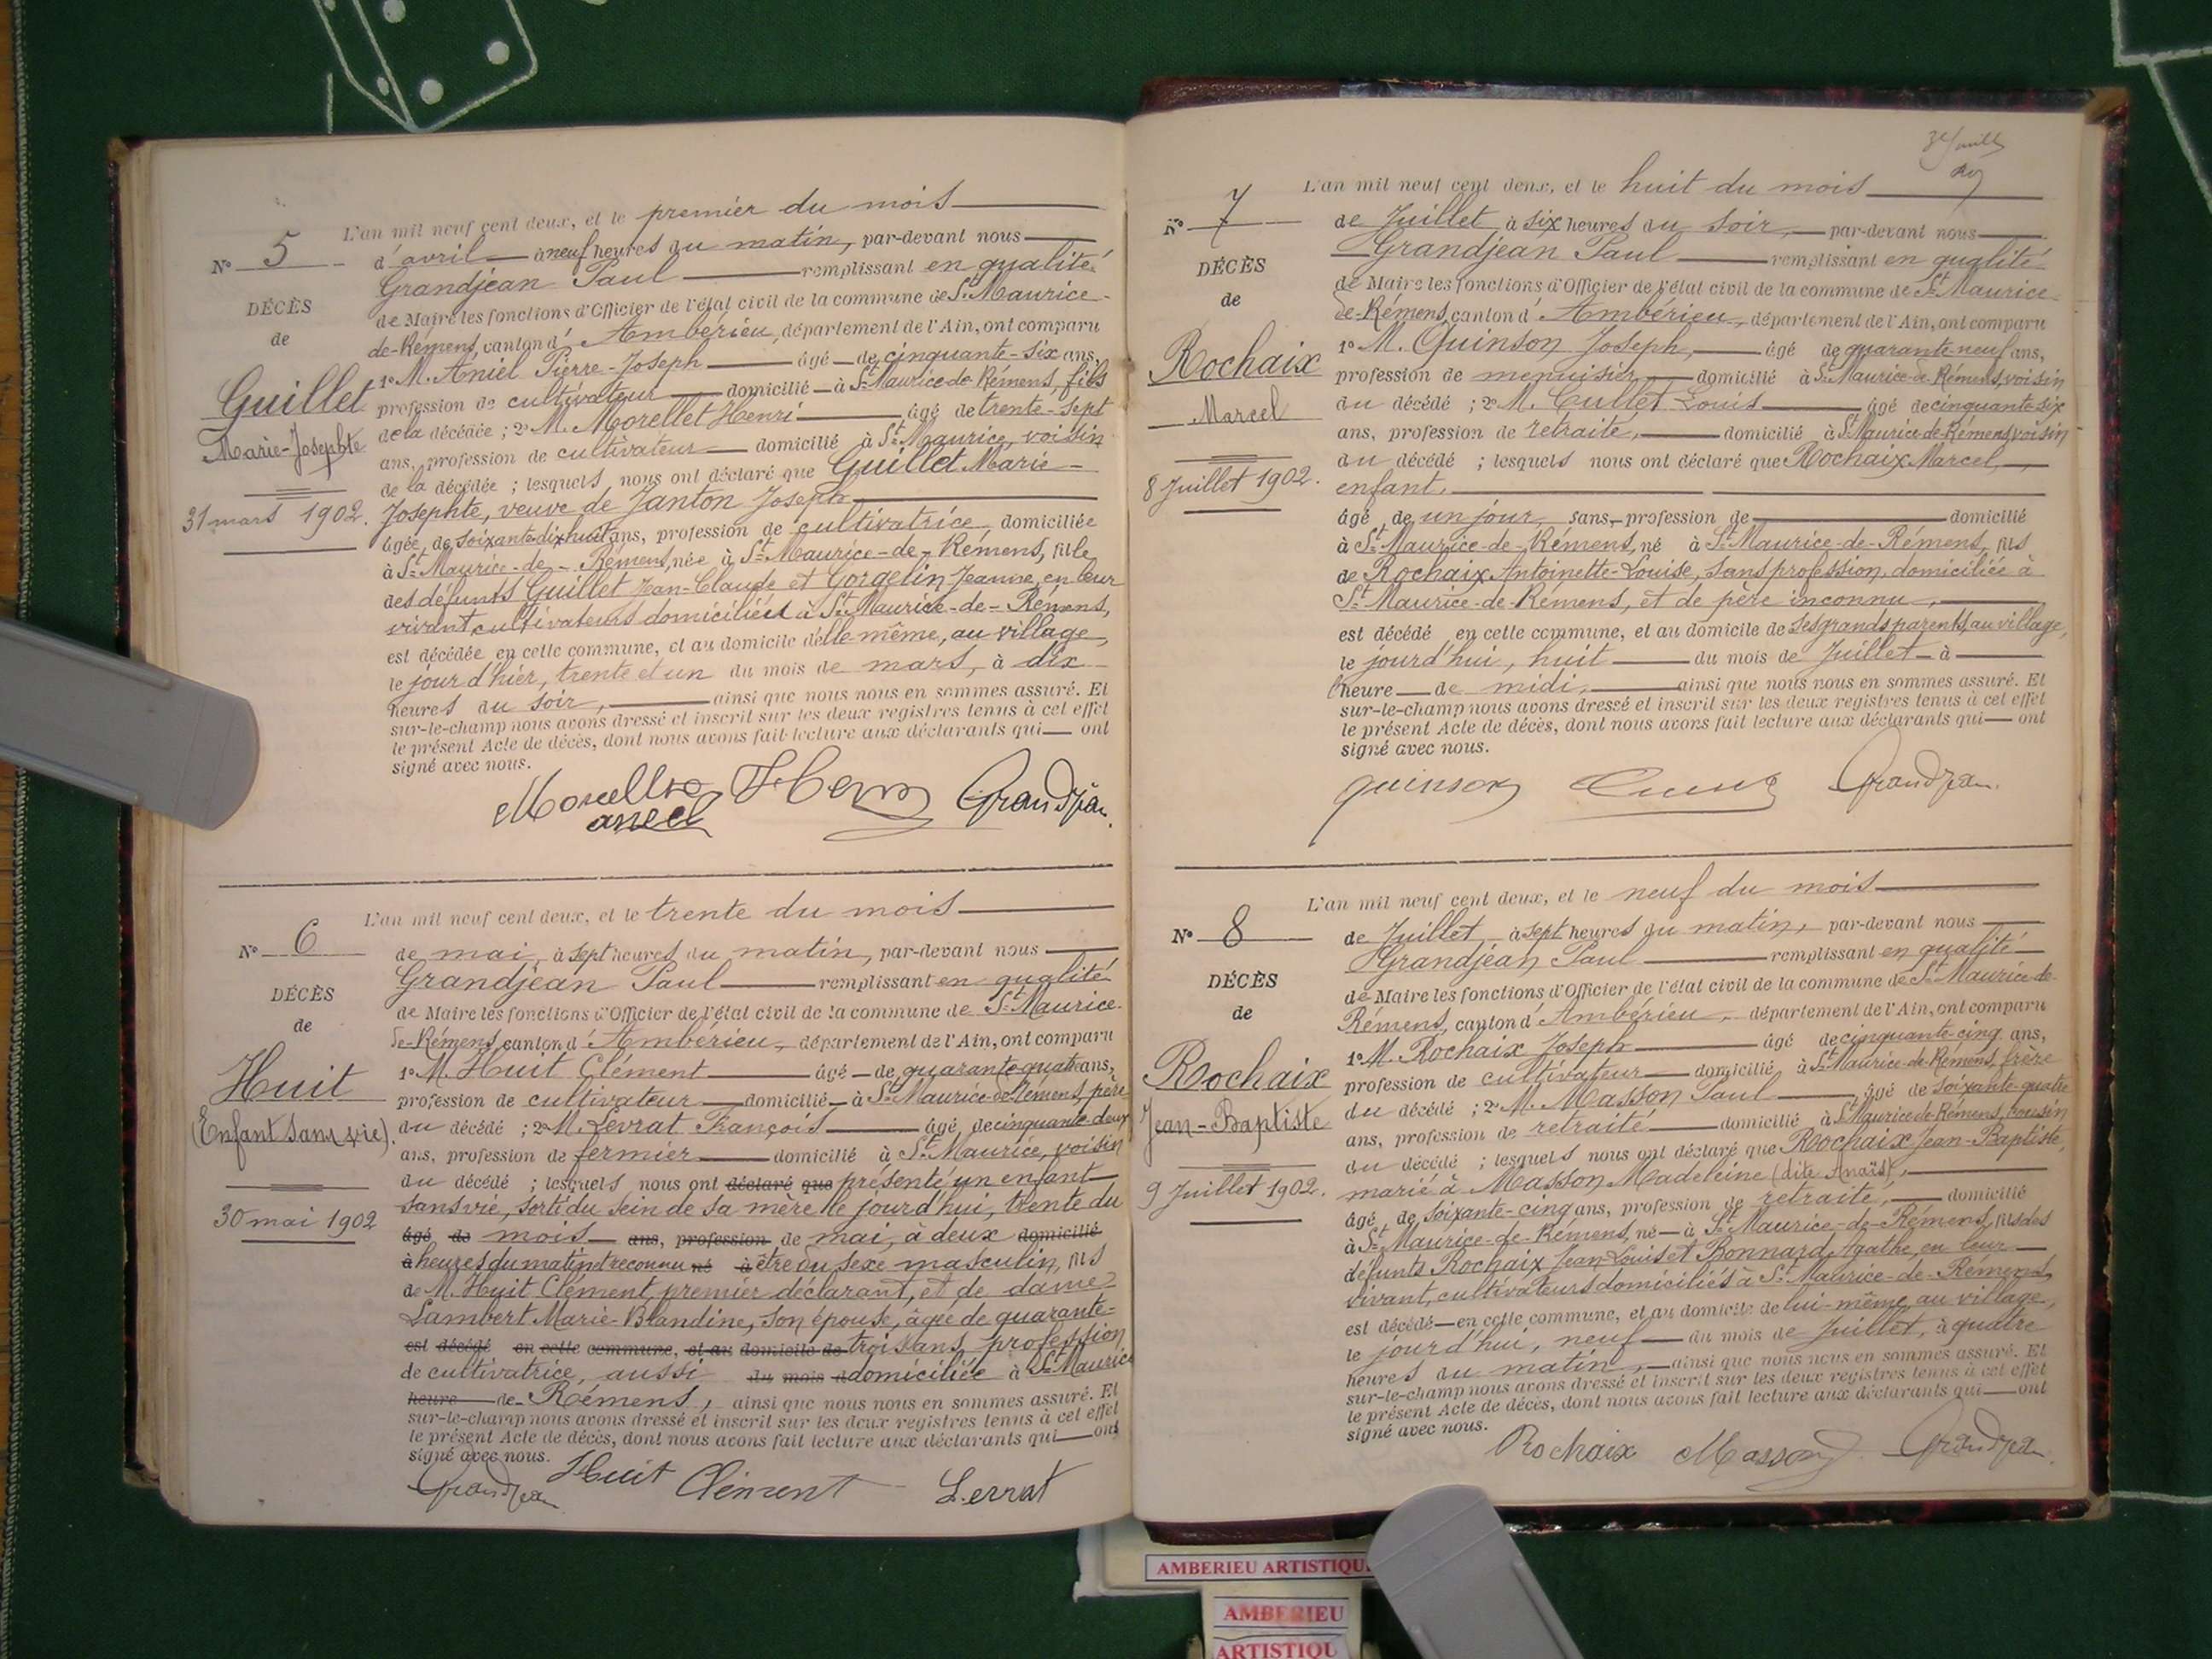 L'an mil neuf cent deux, et le premier du mois
N° 5
d'avril à neuf heures du matin, par-devant nous
Grandjean Paul remplissant en qualité
DÉCÈS
de Maire les fonctions d'Officier de l'état civil de la commune de St Maurice-
de
de-Rémens, canton d'Ambérieu, département de l'Ain, ont comparu
1° M. Aniel Pierre-Joseph âgé de cinquante-six ans,
Guillet
profession de cultivateur domicilié à St Maurice-de-Rémens, fils
de la décédée ; 2° M. Morellet Henri âgé de trente-sept
Marie-Josephte
ans, profession de cultivateur domicilié à St Maurice, voisin
de la décédée ; lesquels nous ont déclaré que Guillet Marie-
31 mars 1902.
Josephte, veuve de Janton Joseph
âgée de soixante dix huit ans, profession de cultivatrice domiciliée
à St Maurice-de-Rémens, née à St Maurice-de-Rémens, fille
des défunts Guillet Jean-Claude et Gorgelin Jeanne, en leur
vivant cultivateurs domiciliés à St Maurice-de-Rémens,
est décédée en cette commune, et au domicile d'elle même, au village,
le jour d'hier, trente et un du mois de mars, à dix
heures du soir, ainsi que nous nous en sommes assuré. Et
sur-le-champ nous avons dressé et inscrit sur les deux registres tenus à cet effet
le présent Acte de décès, dont nous avons fait lecture aux déclarants qui ont
signé avec nous.
Grandjean
L'an mil neuf cent deux, et le trente du mois
N° 6
de mai, à sept heures du matin, par-devant nous
Grandjean Paul remplissant en qualité
DÉCÈS
de Maire les fonctions d'Officier de l'état civil de la commune de St Maurice-
de
de-Rémens, canton d'Ambérieu, département de l'Ain, ont comparu
1° M. Huit Clément âgé de quarante-quatre ans,
Huit
profession de cultivateur domicilié à St Maurice-de-Rémens, père
(Enfant sans vie).
du décédé ; 2° M. Levrat François âgé de cinquante-deux
ans, profession de fermier domicilié à St Maurice, voisin
du décédé ; lesquels nous ont déclaré que présenté un enfant
30 mai 1902
sans vie, sorti du sein de sa mère le jourd'hui, trente du
âgé de mois ans, profession de mai, à deux domicilié
à heures du matin et reconnu né à être du sexe masculin, fils
de M. Huit Clément, premier déclarant, et de dame
Lambert Marie-Blandine, son épouse, âgée de quarante-
est décédé en cette commune, et au domicile de trois ans, profession
de cultivatrice, aussi du mois domiciliée à St Maurice
heure de-Rémens, ainsi que nous nous en sommes assuré. Et
sur-le-champ nous avons dressé et inscrit sur les deux registres tenus à cet effet
le présent Acte de décès, dont nous avons fait lecture aux déclarants qui ont
signé avec nous.
Grandjean Huit Clément Levrat
L'an mil neuf cent deux, et le huit du mois
N° 7
de Juillet à six heures du soir, par-devant nous
Grandjean Paul remplissant en qualité
DÉCÈS
de Maire les fonctions d'Officier de l'état civil de la commune de St Maurice-
de
de-Rémens, canton d'Ambérieu, département de l'Ain, ont comparu
1° M. Quinson Joseph, âgé de quarante-neuf ans,
Rochaix
profession de menuisier domicilié à St Maurice-de-Rémens, voisin
Marcel
du décédé ; 2° M. Cullet Louis âgé de cinquante-six
ans, profession de retraité, domicilié à St Maurice-de-Rémens, voisin
du décédé ; lesquels nous ont déclaré que Rochaix Marcel,
8 Juillet 1902.
enfant,
âgé de un jour, sans profession de domicilié
à St Maurice-de-Rémens, né à St Maurice-de-Rémens, fils
de Rochaix Antoinette-Louise, sans profession, domiciliée à
St Maurice-de-Rémens, et de père inconnu,
est décédé en cette commune, et au domicile de ses grands parents, au village,
le jourd'hui, huit du mois de Juillet à
l'heure de midi, ainsi que nous nous en sommes assuré. Et
sur-le-champ nous avons dressé et inscrit sur les deux registres tenus à cet effet
le présent Acte de décès, dont nous avons fait lecture aux déclarants qui ont
signé avec nous.
Quinson Grandjean
L'an mil neuf cent deux, et le neuf du mois
N° 8
de Juillet, à sept heures du matin, par-devant nous
Grandjean Paul remplissant en qualité
DÉCÈS
de Maire les fonctions d'Officier de l'état civil de la commune de St Maurice-de-
de
Rémens, canton d'Ambérieu, département de l'Ain, ont comparu
1° M. Rochaix Joseph âgé de cinquante-cinq ans,
Rochaix
profession de cultivateur domicilié à St Maurice-de-Rémens, frère
du décédé ; 2° M. Masson Paul âgé de soixante-quatre
Jean-Baptiste
ans, profession de retraité domicilié à St Maurice-de-Rémens, cousin
du décédé ; lesquels nous ont déclaré que Rochaix Jean-Baptiste,
9 Juillet 1902.
marié à Masson Madeleine (dite Anaïs),
âgé de soixante-cinq ans, profession de retraité, domicilié
à St Maurice-de-Rémens, né à St Maurice-de-Rémens, fils des
défunts Rochaix Jean-Louis et Bonnard Agathe, en leur
vivant, cultivateurs domiciliés à St Maurice-de-Rémens,
est décédé en cette commune, et au domicile de lui-même, au village,
le jourd'hui, neuf du mois de Juillet, à quatre
heures du matin, ainsi que nous nous en sommes assuré. Et
sur-le-champ nous avons dressé et inscrit sur les deux registres tenus à cet effet
le présent Acte de décès, dont nous avons fait lecture aux déclarants qui ont
signé avec nous.
Rochaix Masson Grandjean
AMBERIEU ARTISTIQU
AMBERIEU
ARTISTIQU